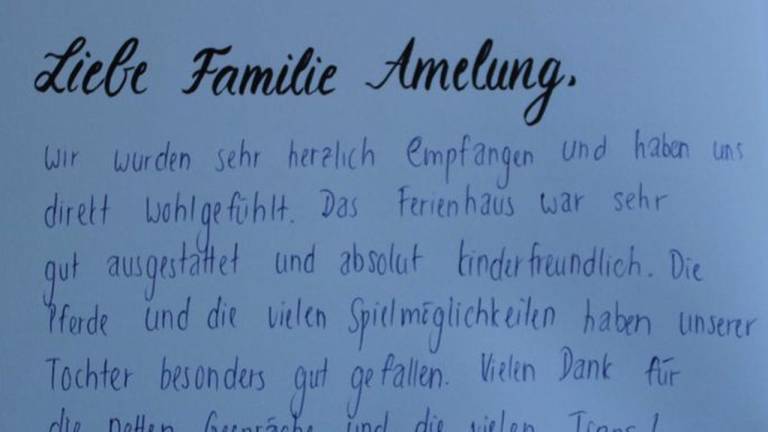 Liebe Familie Amelung,
wir wurden sehr herzlich empfangen und haben uns
direkt wohlgefühlt. Das Ferienhaus war sehr
gut ausgestattet und absolut kinderfreundlich. Die
Pferde und die vielen Spielmöglichkeiten haben unserer
Tochter besonders gut gefallen. Vielen Dank für
die netten Gespräche und die vielen